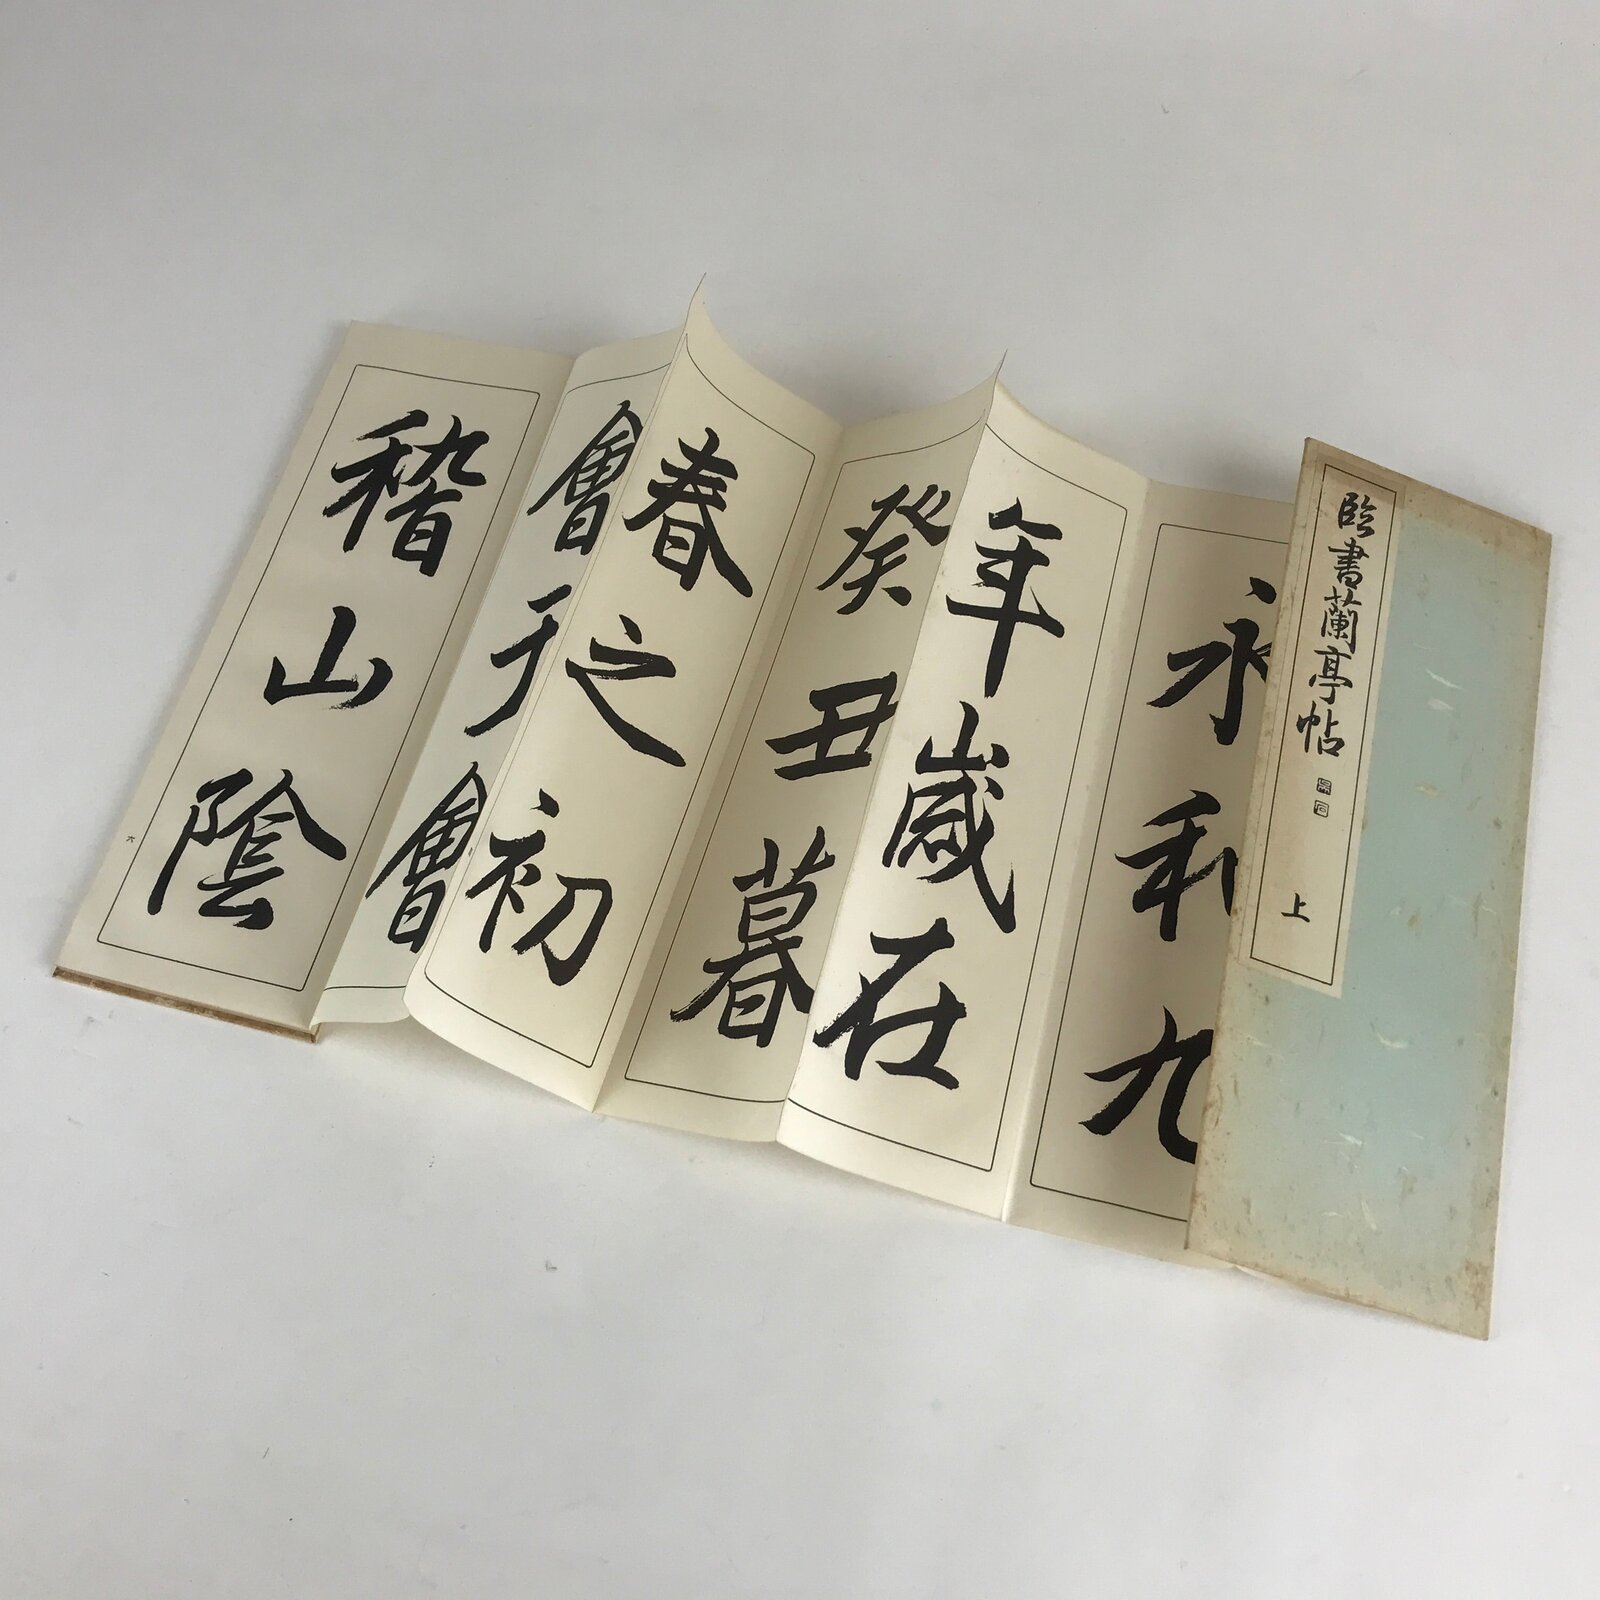 臨書蘭亭帖
上
永和九
年歲在
癸丑暮
春之初
會于會
稽山陰
六